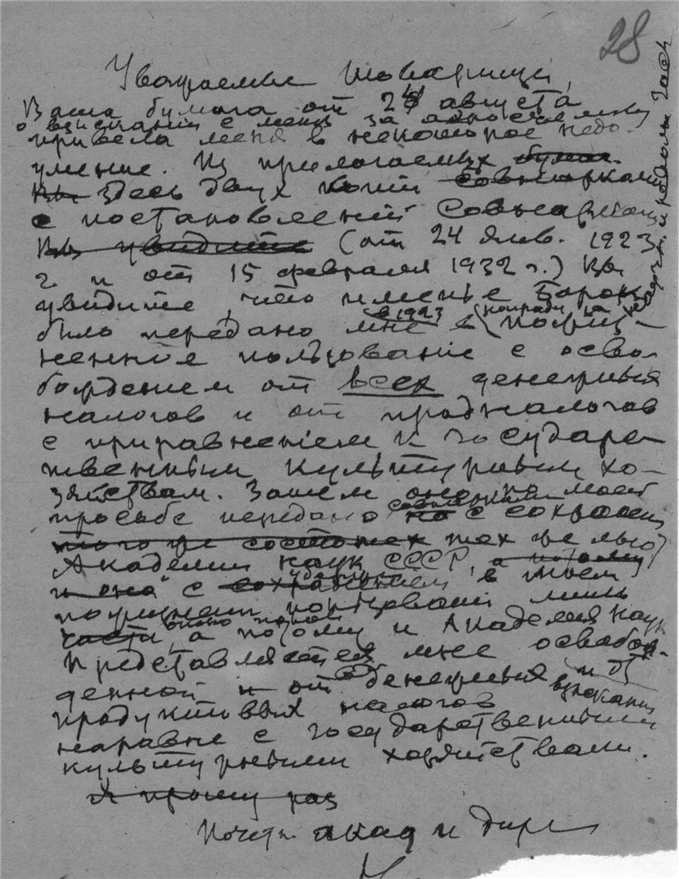 28
Уважаемые товарищи,
Ваша бумага от 24 августа
о взыскании с меня за
привела меня в некоторое недо-
умение. Из прилагаемых бумаг
Вы здесь двух копий совнаркома
с постановлений Совнаркома
Вы увидите (от 24 янв. 1923
г и от 15 февраля 1932 г.) Вы
увидите, что именье Борок
было передано мне в 1923 в пожиз-
ненное пользование с осво
бождением от всех денежных
налогов и от продналогов
с приравнением к государс-
твенным культурным хо-
зяйствам. Затем оно по моей
просьбе передано с сохранен
того же тех же
Академии наук СССР, а потому
и она с сохранением в моем
лишь
части, а потому и Академия наук
представляется мне освобож-
денной и от денежных и от
продуктовых налогов взысканий
наравне с государственными
культурными хозяйствами.
Я прошу раз
Почетн акад и дир
Н